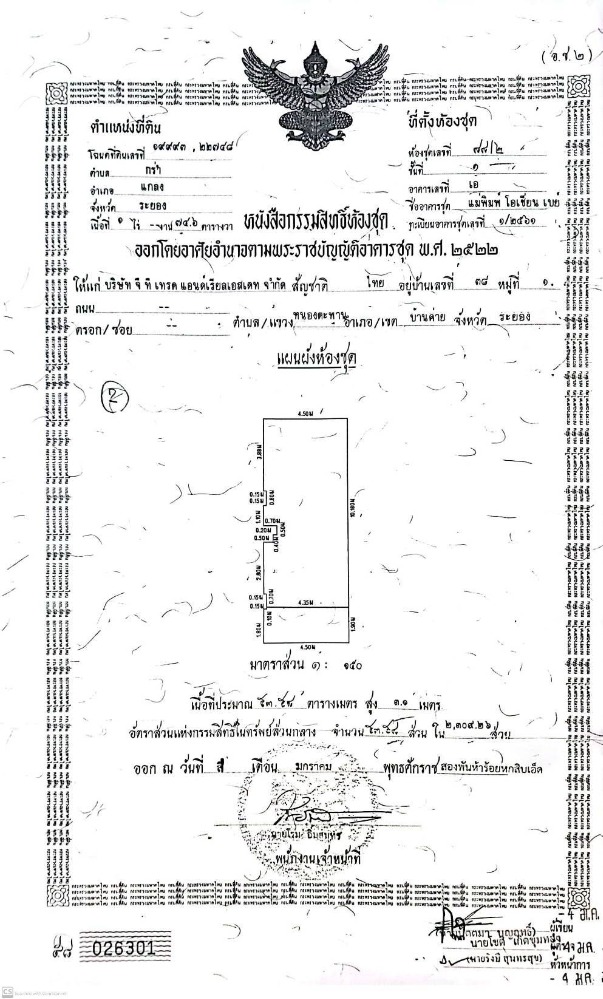 (อ.ช.๒)
ตำแหน่งที่ดิน
โฉนดที่ดินเลขที่ ๑๙๙๙๓, ๒๒๗๔๘
ตำบล กร่ำ
อำเภอ แกลง
จังหวัด ระยอง
เนื้อที่ ๑ ไร่ - งาน ๗๔.๖ ตารางวา
ที่ตั้งห้องชุด
ห้องชุดเลขที่ ๗๘/๒
ชั้นที่ ๑
อาคารเลขที่ เอ
ชื่ออาคารชุด แม่พิมพ์ โอเชี่ยน เบย์
ทะเบียนอาคารชุดเลขที่ ๑/๒๕๖๑
หนังสือกรรมสิทธิ์ห้องชุด
ออกโดยอาศัยอำนาจตามพระราชบัญญัติอาคารชุด พ.ศ. ๒๕๒๒
ให้แก่ บริษัท จิ ที เทรด แอนด์เรียลเอสเตท จำกัด สัญชาติ ไทย อยู่บ้านเลขที่ ๓๘ หมู่ที่ ๑
ถนน --
ตรอก/ซอย -- ตำบล/แขวง หนองตะพาน อำเภอ/เขต บ้านค่าย จังหวัด ระยอง
แผนผังห้องชุด
2
4.50M
10.180M
0.15M
0.15M
1.10M
0.70M
0.20M
0.50M
0.50M
0.40M
2.80M
0.15M
0.15M
0.70M
4.35M
0.10M
1.80M
1.90M
4.50M
มาตราส่วน ๑ : ๑๕๐
เนื้อที่ประมาณ ๕๓.๕๘ ตารางเมตร สูง ๓.๑ เมตร
อัตราส่วนแห่งกรรมสิทธิ์ในทรัพย์ส่วนกลาง จำนวน ๕๓.๕๘ ส่วน ใน ๒,๓๐๙.๒๖ ส่วน
ออก ณ วันที่ ๔ เดือน มกราคม พุทธศักราช สองพันห้าร้อยหกสิบเอ็ด
พนักงานเจ้าหน้าที่
๕๘ 026301
4 ม.ค.
ผู้เขียน
(นายรังษี สุนทรสุข) หัวหน้าการ
- 4 ม.ค.